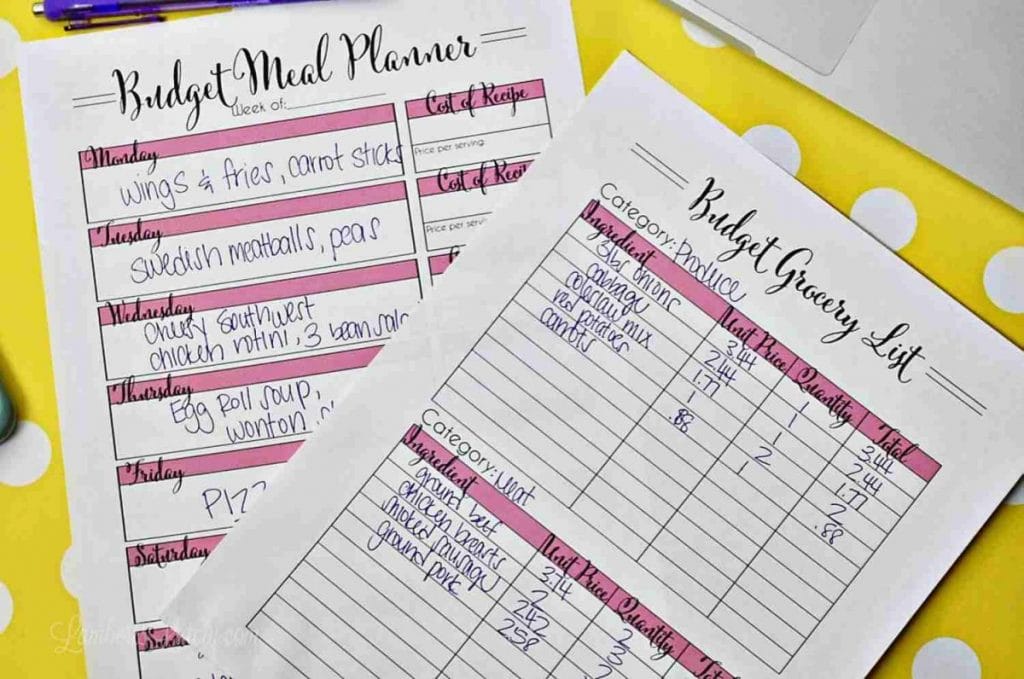 Budget Meal Planner
Week of:
Monday
wings & fries, carrot sticks
Cost of Recipe
Price per serving:
Tuesday
swedish meatballs, peas
Cost of Reci
Price per serving
Wednesday
cheesy southwest
chicken rotini, 3 bean sala
Thursday
Egg Roll soup,
wonton
Friday
PIZZ
Saturday
Budget Grocery List
Category: Produce
Ingredient Unit Price Quantity Total
3lbs onions 3.44 1 3.44
cabbage 2.44 1 2.44
coleslaw mix 1.77 1 1.77
red potatoes 1 2 2
carrots .88 1 .88
Category: Meat
Ingredient Unit Price Quantity Tot
ground beef 3.74 2
chicken breasts 2 3
smoked sausage 2.42
ground pork 2.58